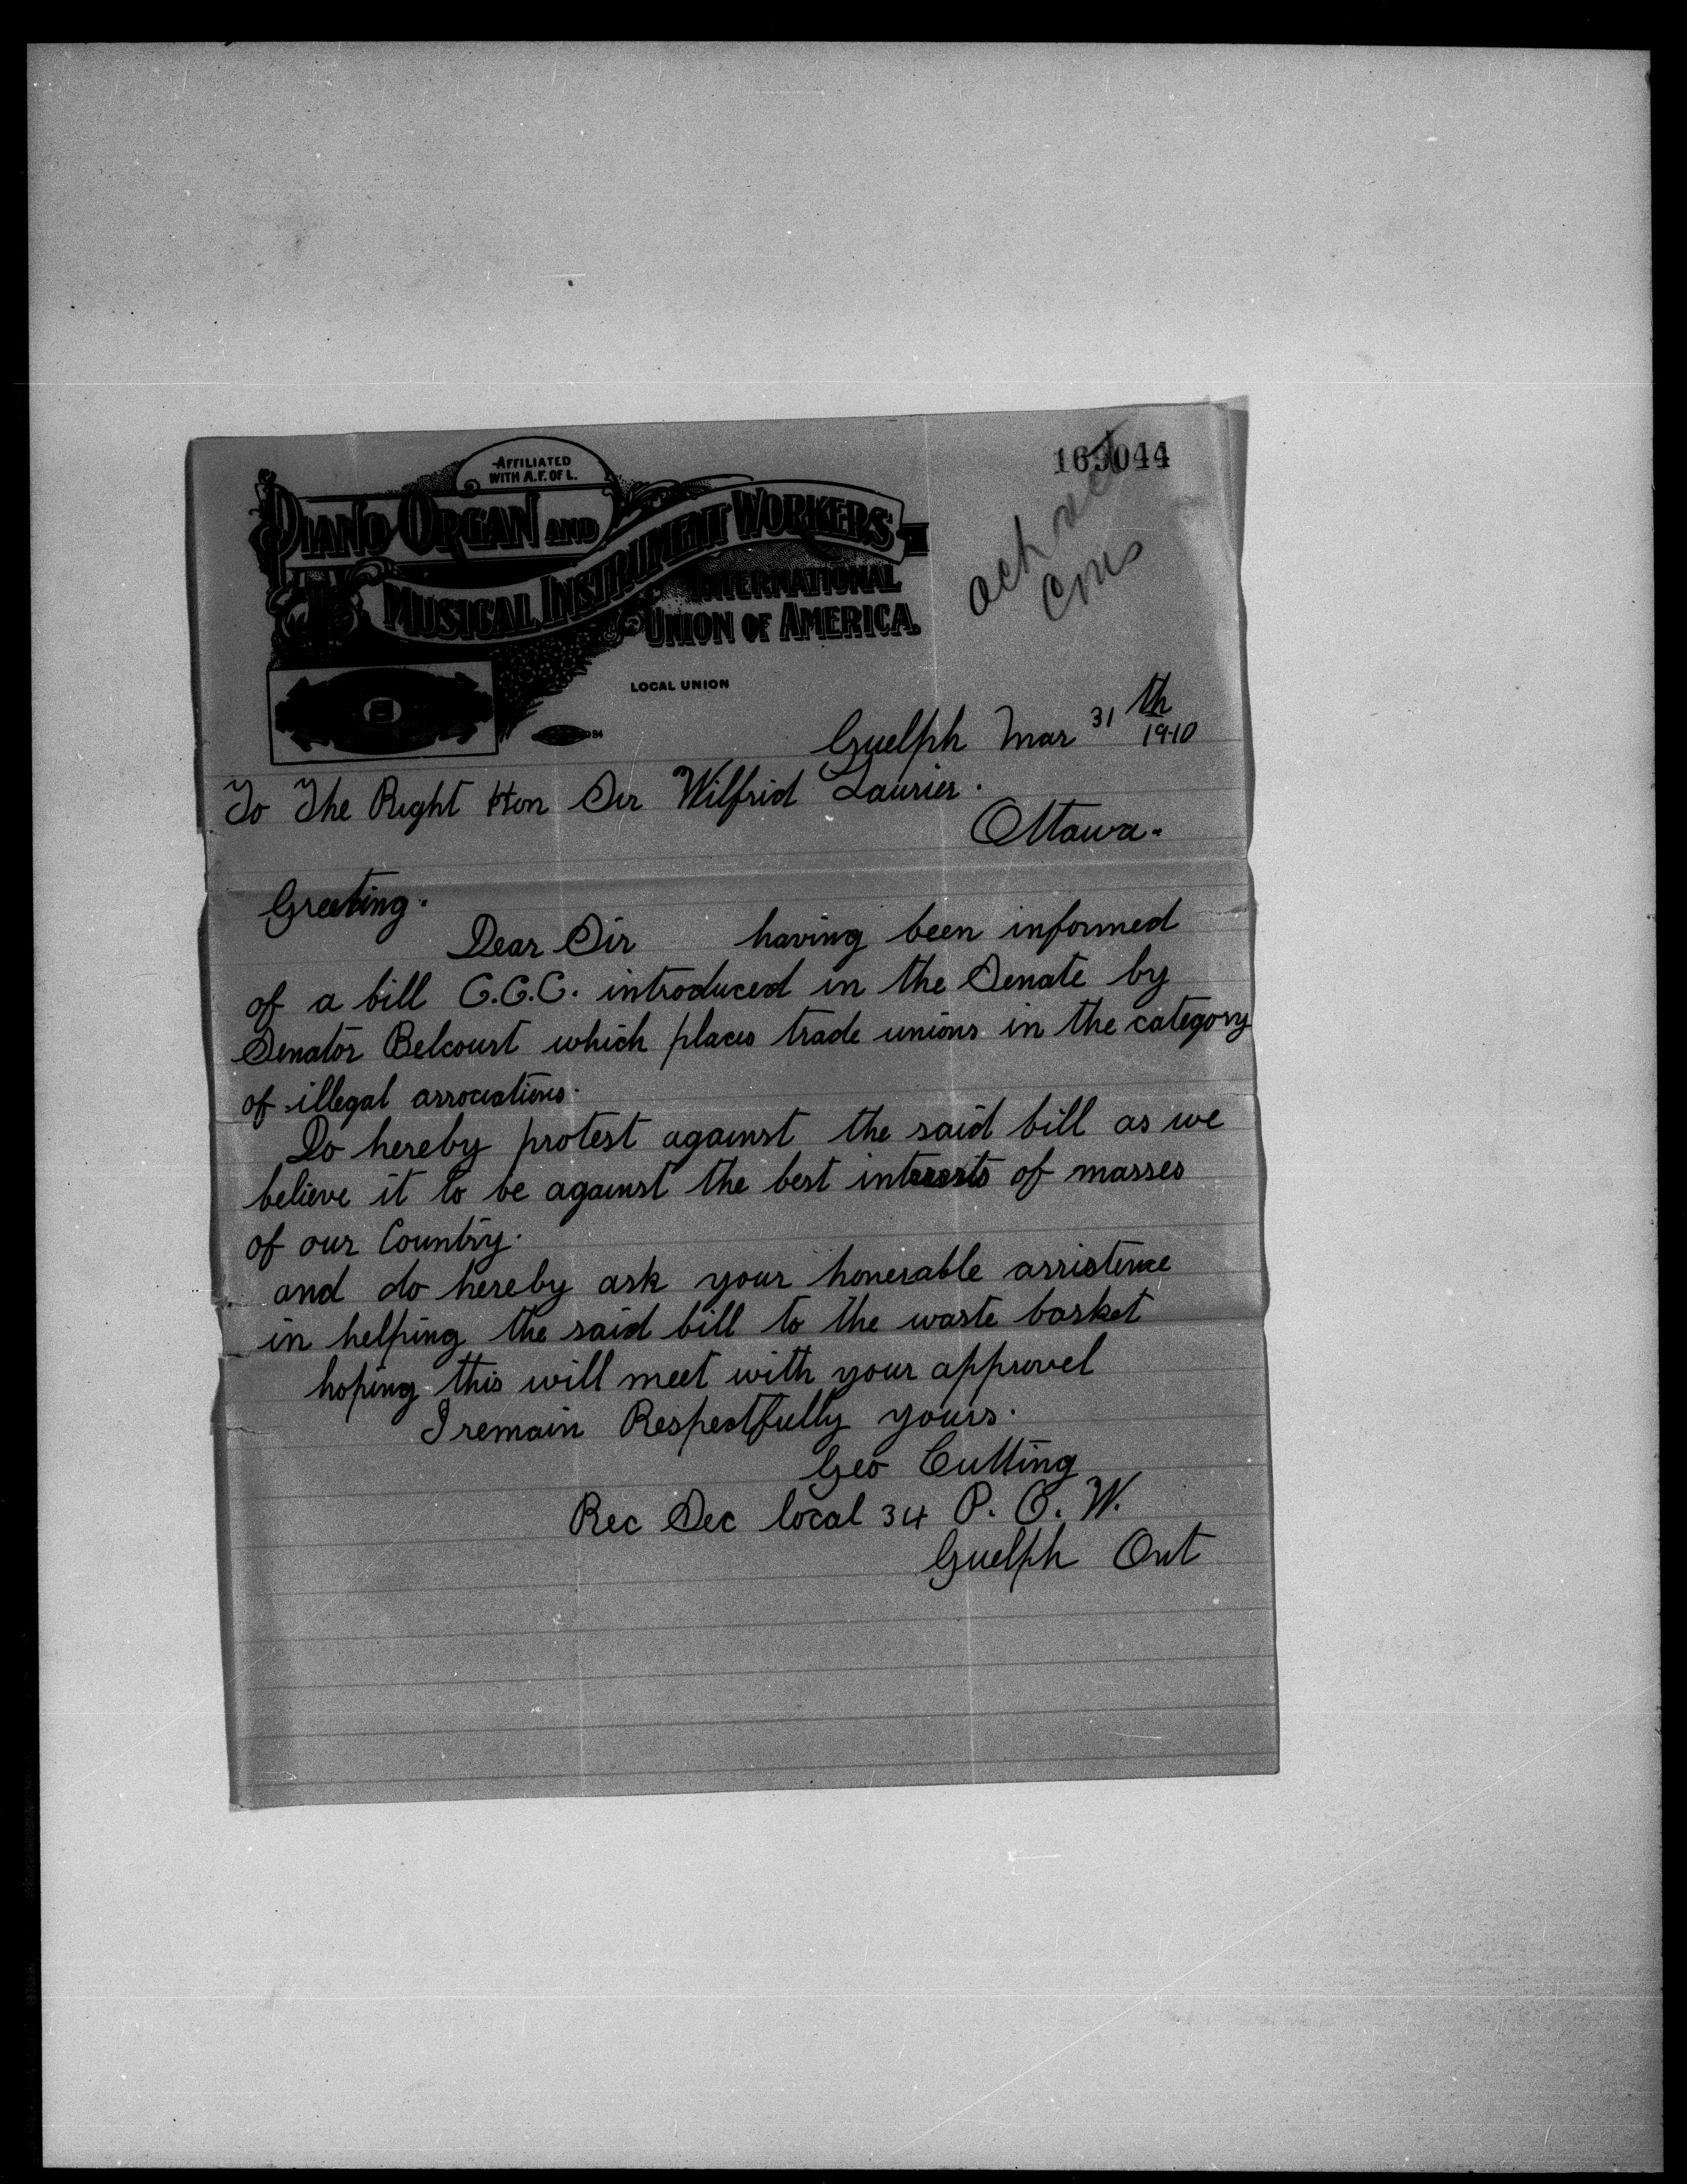 AFFILIATED
WITH A.F. OF L.
PIANO ORGAN AND
MUSICAL INSTRUMENT WORKERS
INTERNATIONAL
UNION OF AMERICA.
LOCAL UNION
Guelph Mar 31th 1910
To The Right Hon Sir Wilfrid Laurier.
Ottawa.
Greeting.
Dear Sir having been informed
of a bill C.C.C. introduced in the Senate by
Senator Belcourt which places trade unions in the category
of illegal associations.
Do hereby protest against the said bill as we
believe it to be against the best interests of masses
of our Country.
and do hereby ask your honerable assistence
in helping the said bill to the waste basket
hoping this will meet with your approvel
I remain Respectfully yours.
Geo Cutting
Rec Sec local 34 P. O. W.
Guelph Ont